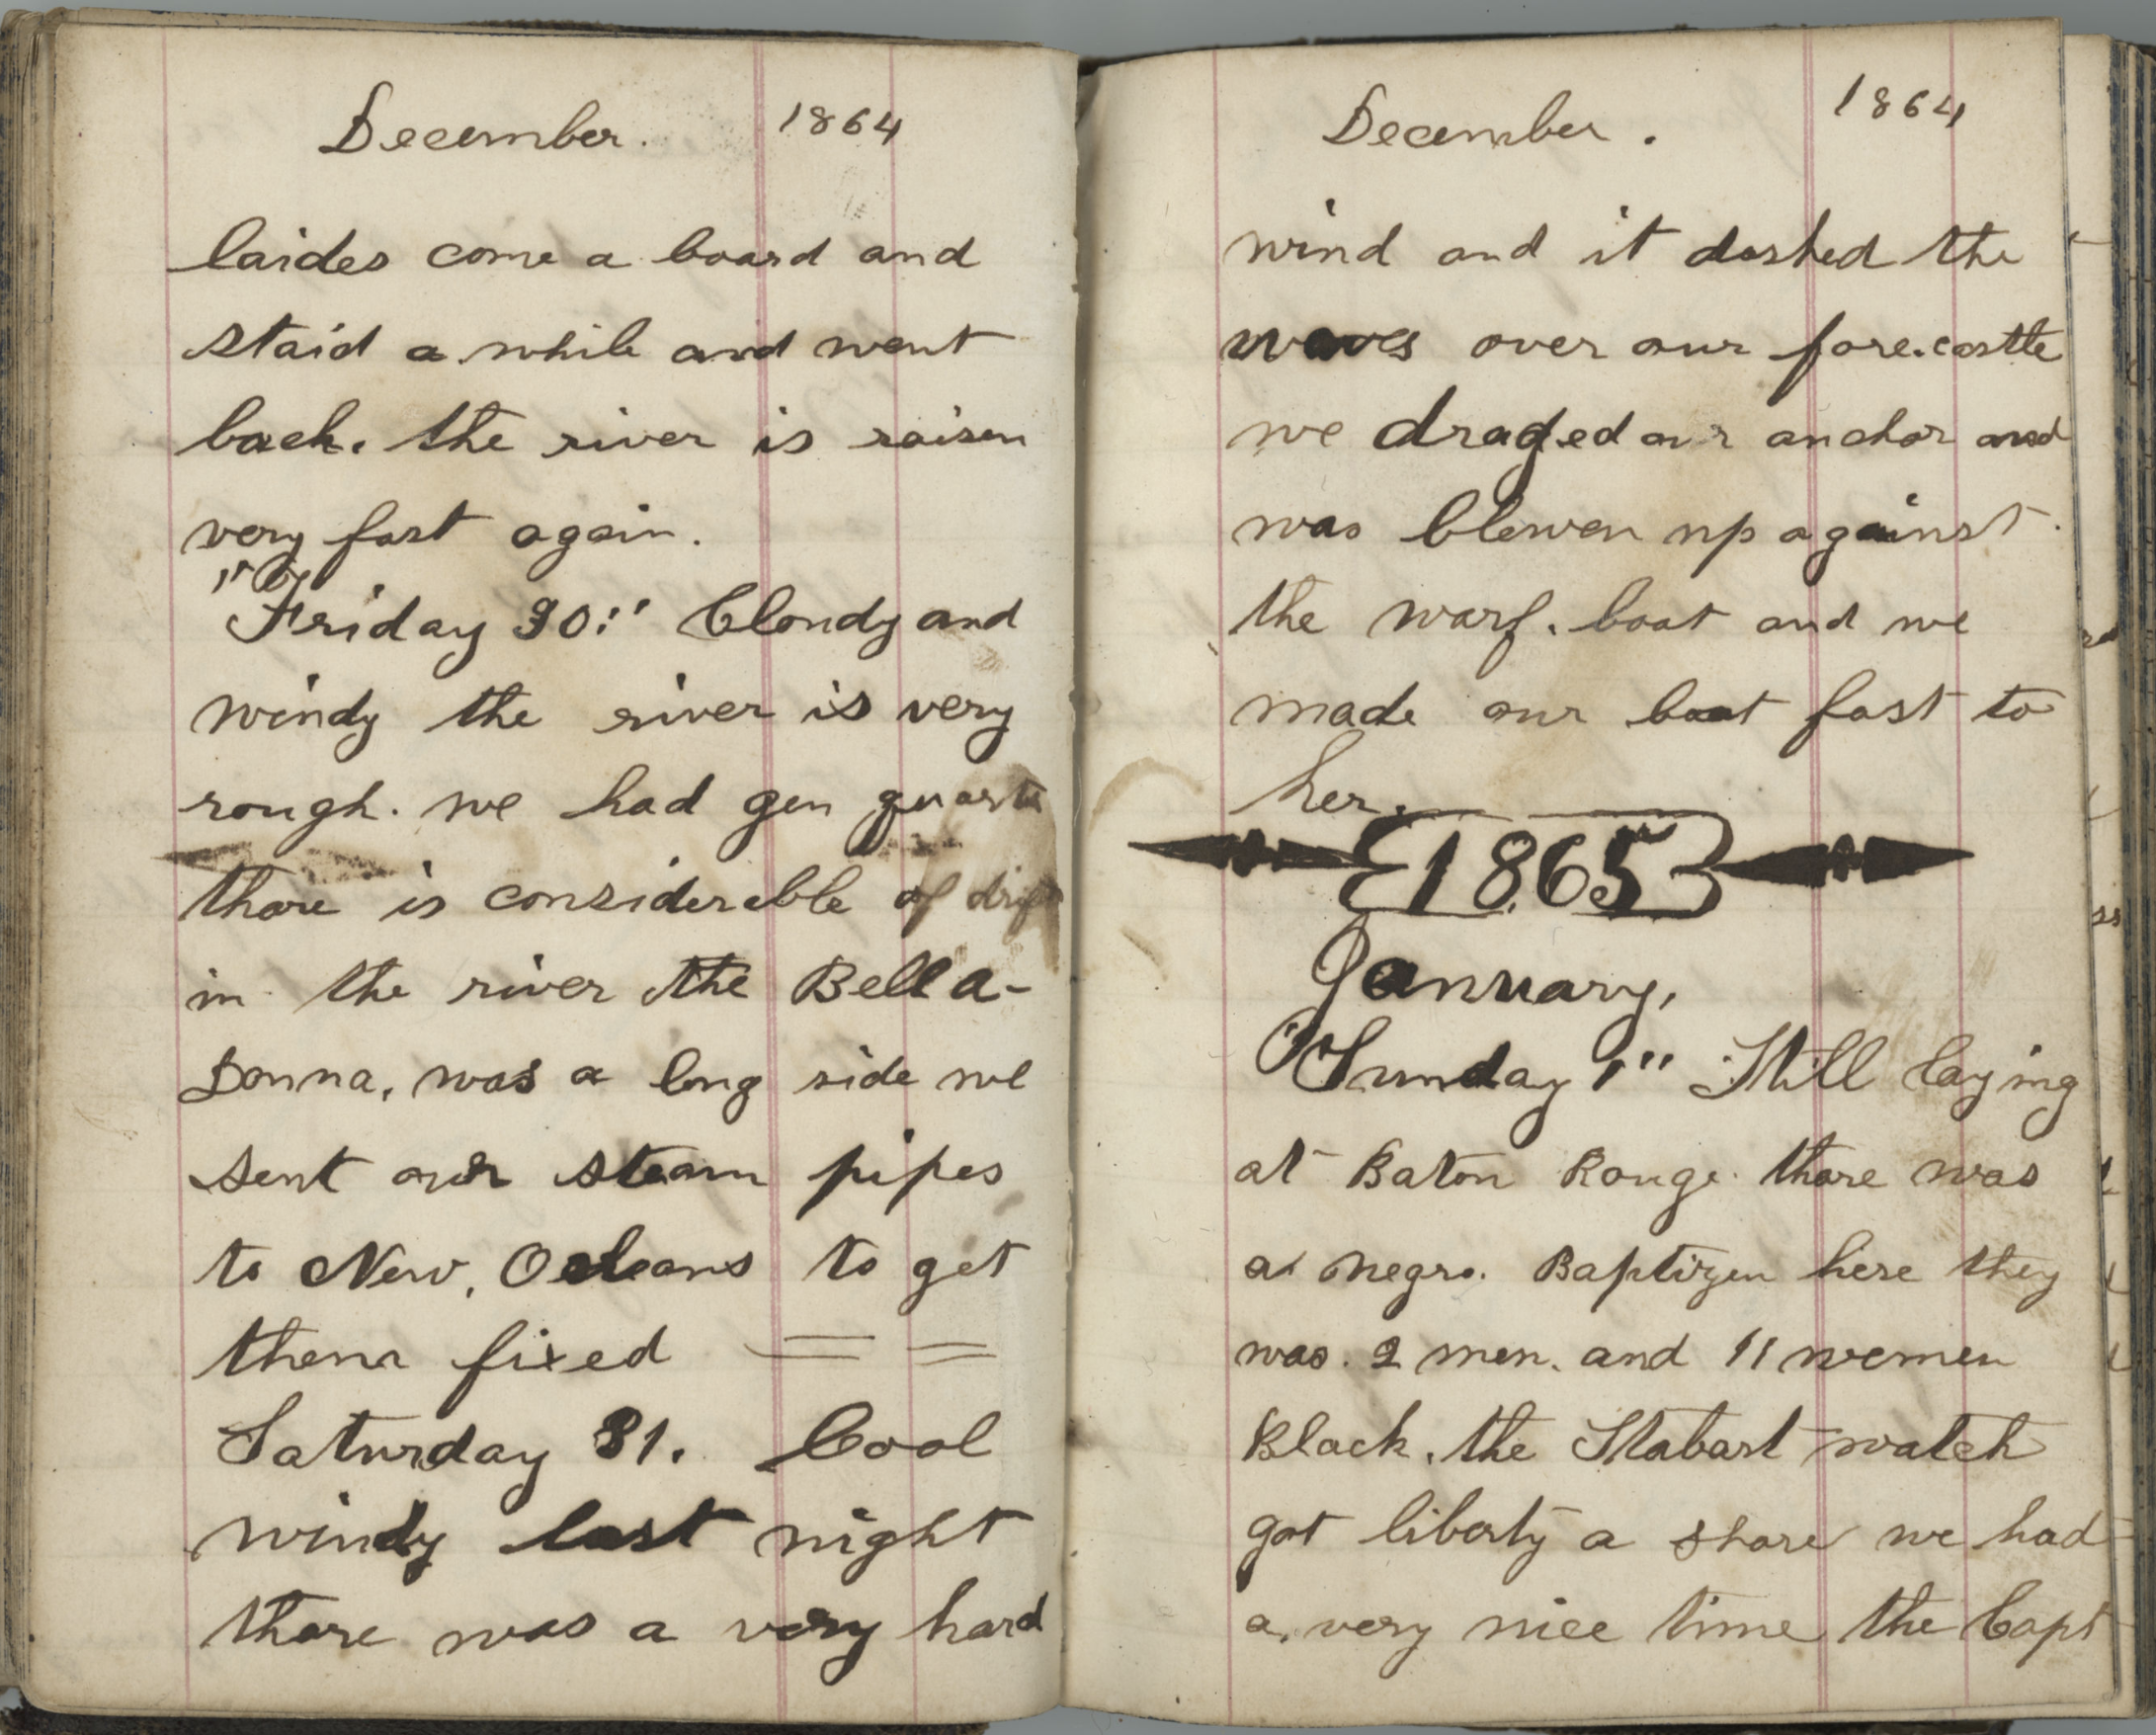 December. 1864
laides come a board and
staid a while and went
back. the river is raisen
very fast again.
"Friday 30:" Cloudy and
windy the river is very
rough. we had gen quarts
thare is considerable of drift
in the river the Bella-
Donna, was a long side we
sent our steam pipes
to New, Orleans to get
them fixed
Saturday 31. Cool
windy last night
thare was a very hard
December. 1864
wind and it dashed the
waves over our fore.castle
we draged our anchor and
was blewen up against
the warf. boat and we
made our boat fast to
her.
1865
January,
"Sunday 1" Still laying
at Baton Rouge. thare was
a negro. Baptizen here they
was. 2 men. and 11 wemen
Black. the Stabart watch
got liberty a shore we had
a. very nice time the Capt